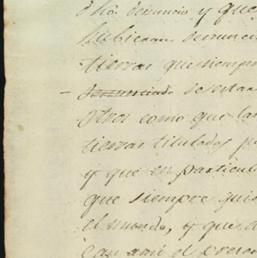 dho denuncio y que
hubieran denuncia
tierras que siempre
denunciado de esta
otros como que las
tierras tituladas p
y que en particul
que siempre quie
el mundo, y que a
can ami el